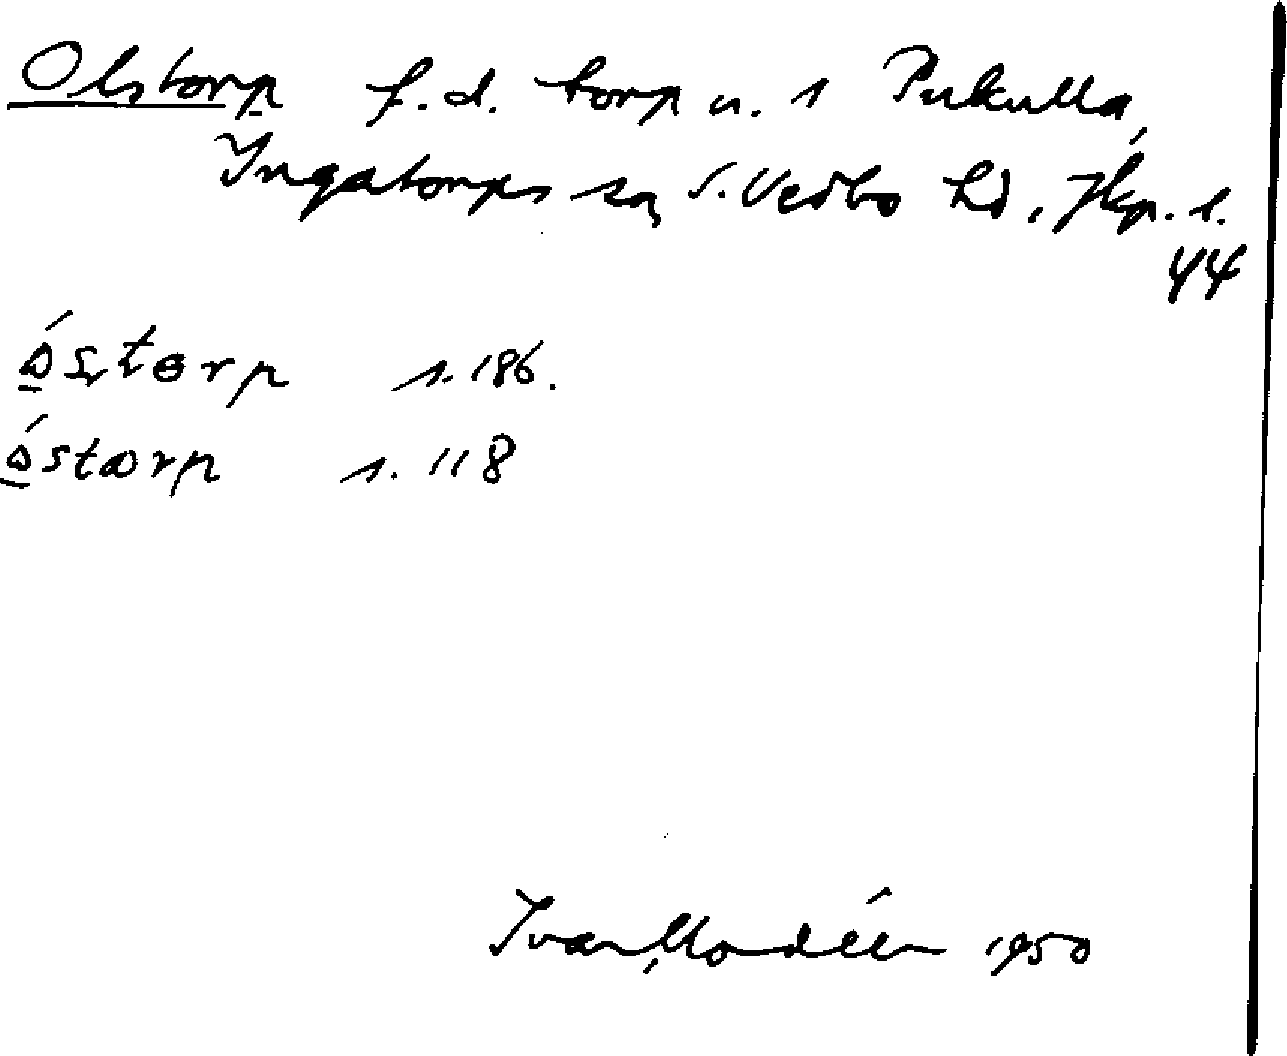 Olstorp f.d. torp u. 1 Pukulla,
Ingatorps sn, S. Vedbo hd, Jkp. l.
44
ó̱stɵrp s. 186.
ó̱stɷrp s. 118
Ivar Modéer 1950